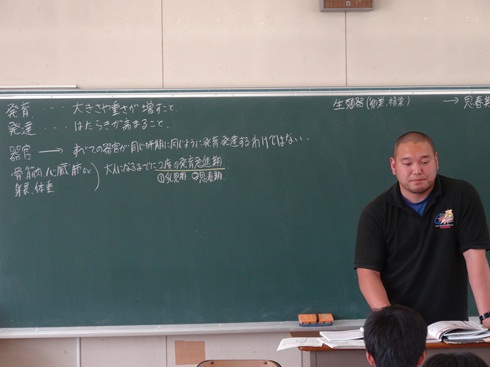 発育・・・大きさや重さが増すこと。
発達・・・はたらきが高まること。
器官 → すべての器官が同じ時期に同じように発育発達するわけではない。
骨筋肉 心臓 肺など 身長、体重 ) 大人になるまでに2度の発育急進期
①乳児期 ②思春期
生殖器(卵巣、精巣) → 思春期